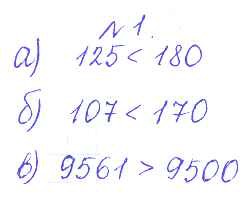 № 1.
а) 125 < 180
б) 107 < 170
в) 9561 > 9500